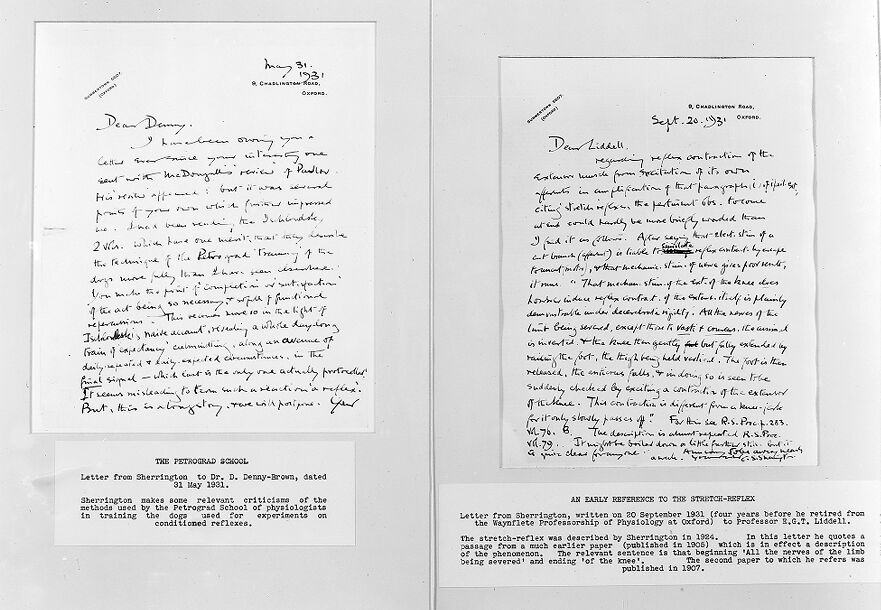 May 31.
1931
SUMMERTOWN
(OXFORD)
9, CHADLINGTON ROAD,
OXFORD.
Dear Denny.
I have been owing you a
letter ever since your interesting one
sent with McDougall's review of Pavlov.
His review : but it was several
points of your own which further impressed
me. I had been reading the
2 vols. which have one merit, that they describe
the technique of the Petrograd training of the
dogs more fully than I have seen described.
You make the point of 'completion' or 'satisfaction'
of the act being so necessary, & so full of functional
repercussions. This seems more so in the light of
naïve account, revealing a whole day long
train of expectancy culminating, along an avenue of
daily-repeated & daily-expected circumstances, in the
final signal — which last is the only one actually
It seems misleading to term such a reaction a reflex.
But, this is a long story, & we will postpone. Your
THE PETROGRAD SCHOOL
Letter from Sherrington to Dr. D. Denny-Brown, dated
31 May 1931.
Sherrington makes some relevant criticisms of the
methods used by the Petrograd School of physiologists
in training the dogs used for experiments on
conditioned reflexes.
SUMMERTOWN
(OXFORD)
9, CHADLINGTON ROAD,
OXFORD.
Sept. 20. 1931
Dear Liddell.
regarding reflex contraction of the
extensor muscle from excitation of its own
afferents in amplification of that paragraph,
citing stretch reflexes, the pertinent obs. to come
at end could hardly be more briefly worded than
I find it as follows. After saying that elect. stim of a
cut branch (afferent) is liable to simulate reflex contract. by escape
to uncut (motor), & that mechanic. stim. of nerve gives poor results,
it runs. "That mechan. stim. of the ext. of the knee does
however induce reflex contract. of the extens. itself is plainly
demonstrable under decerebrate rigidity. All the nerves of the
limb being severed, except those to vasti & crureus, the animal
is inverted, & the knee then gently but fully extended by
raising the foot, the thigh being held vertical. The foot is then
released, the anticrus falls, & in doing so is seen to be
suddenly checked by exciting a contraction of the extensor
of the knee. This contraction is different from a knee-jerk
for it only slowly passes off." For this see R.S. Proc. p. 283.
vol. 76. B. The description is almost repeated R.S. Proc.
vol. 79. It might be boiled down a little further still. but it
is quite clear for anyone.
a week. C.S. Sherrington
AN EARLY REFERENCE TO THE STRETCH-REFLEX
Letter from Sherrington, written on 20 September 1931 (four years before he retired from
the Waynflete Professorship of Physiology at Oxford) to Professor E.G.T. Liddell.
The stretch-reflex was described by Sherrington in 1924. In this letter he quotes a
passage from a much earlier paper (published in 1905) which is in effect a description
of the phenomenon. The relevant sentence is that beginning 'All the nerves of the limb
being severed' and ending 'of the knee'. The second paper to which he refers was
published in 1907.